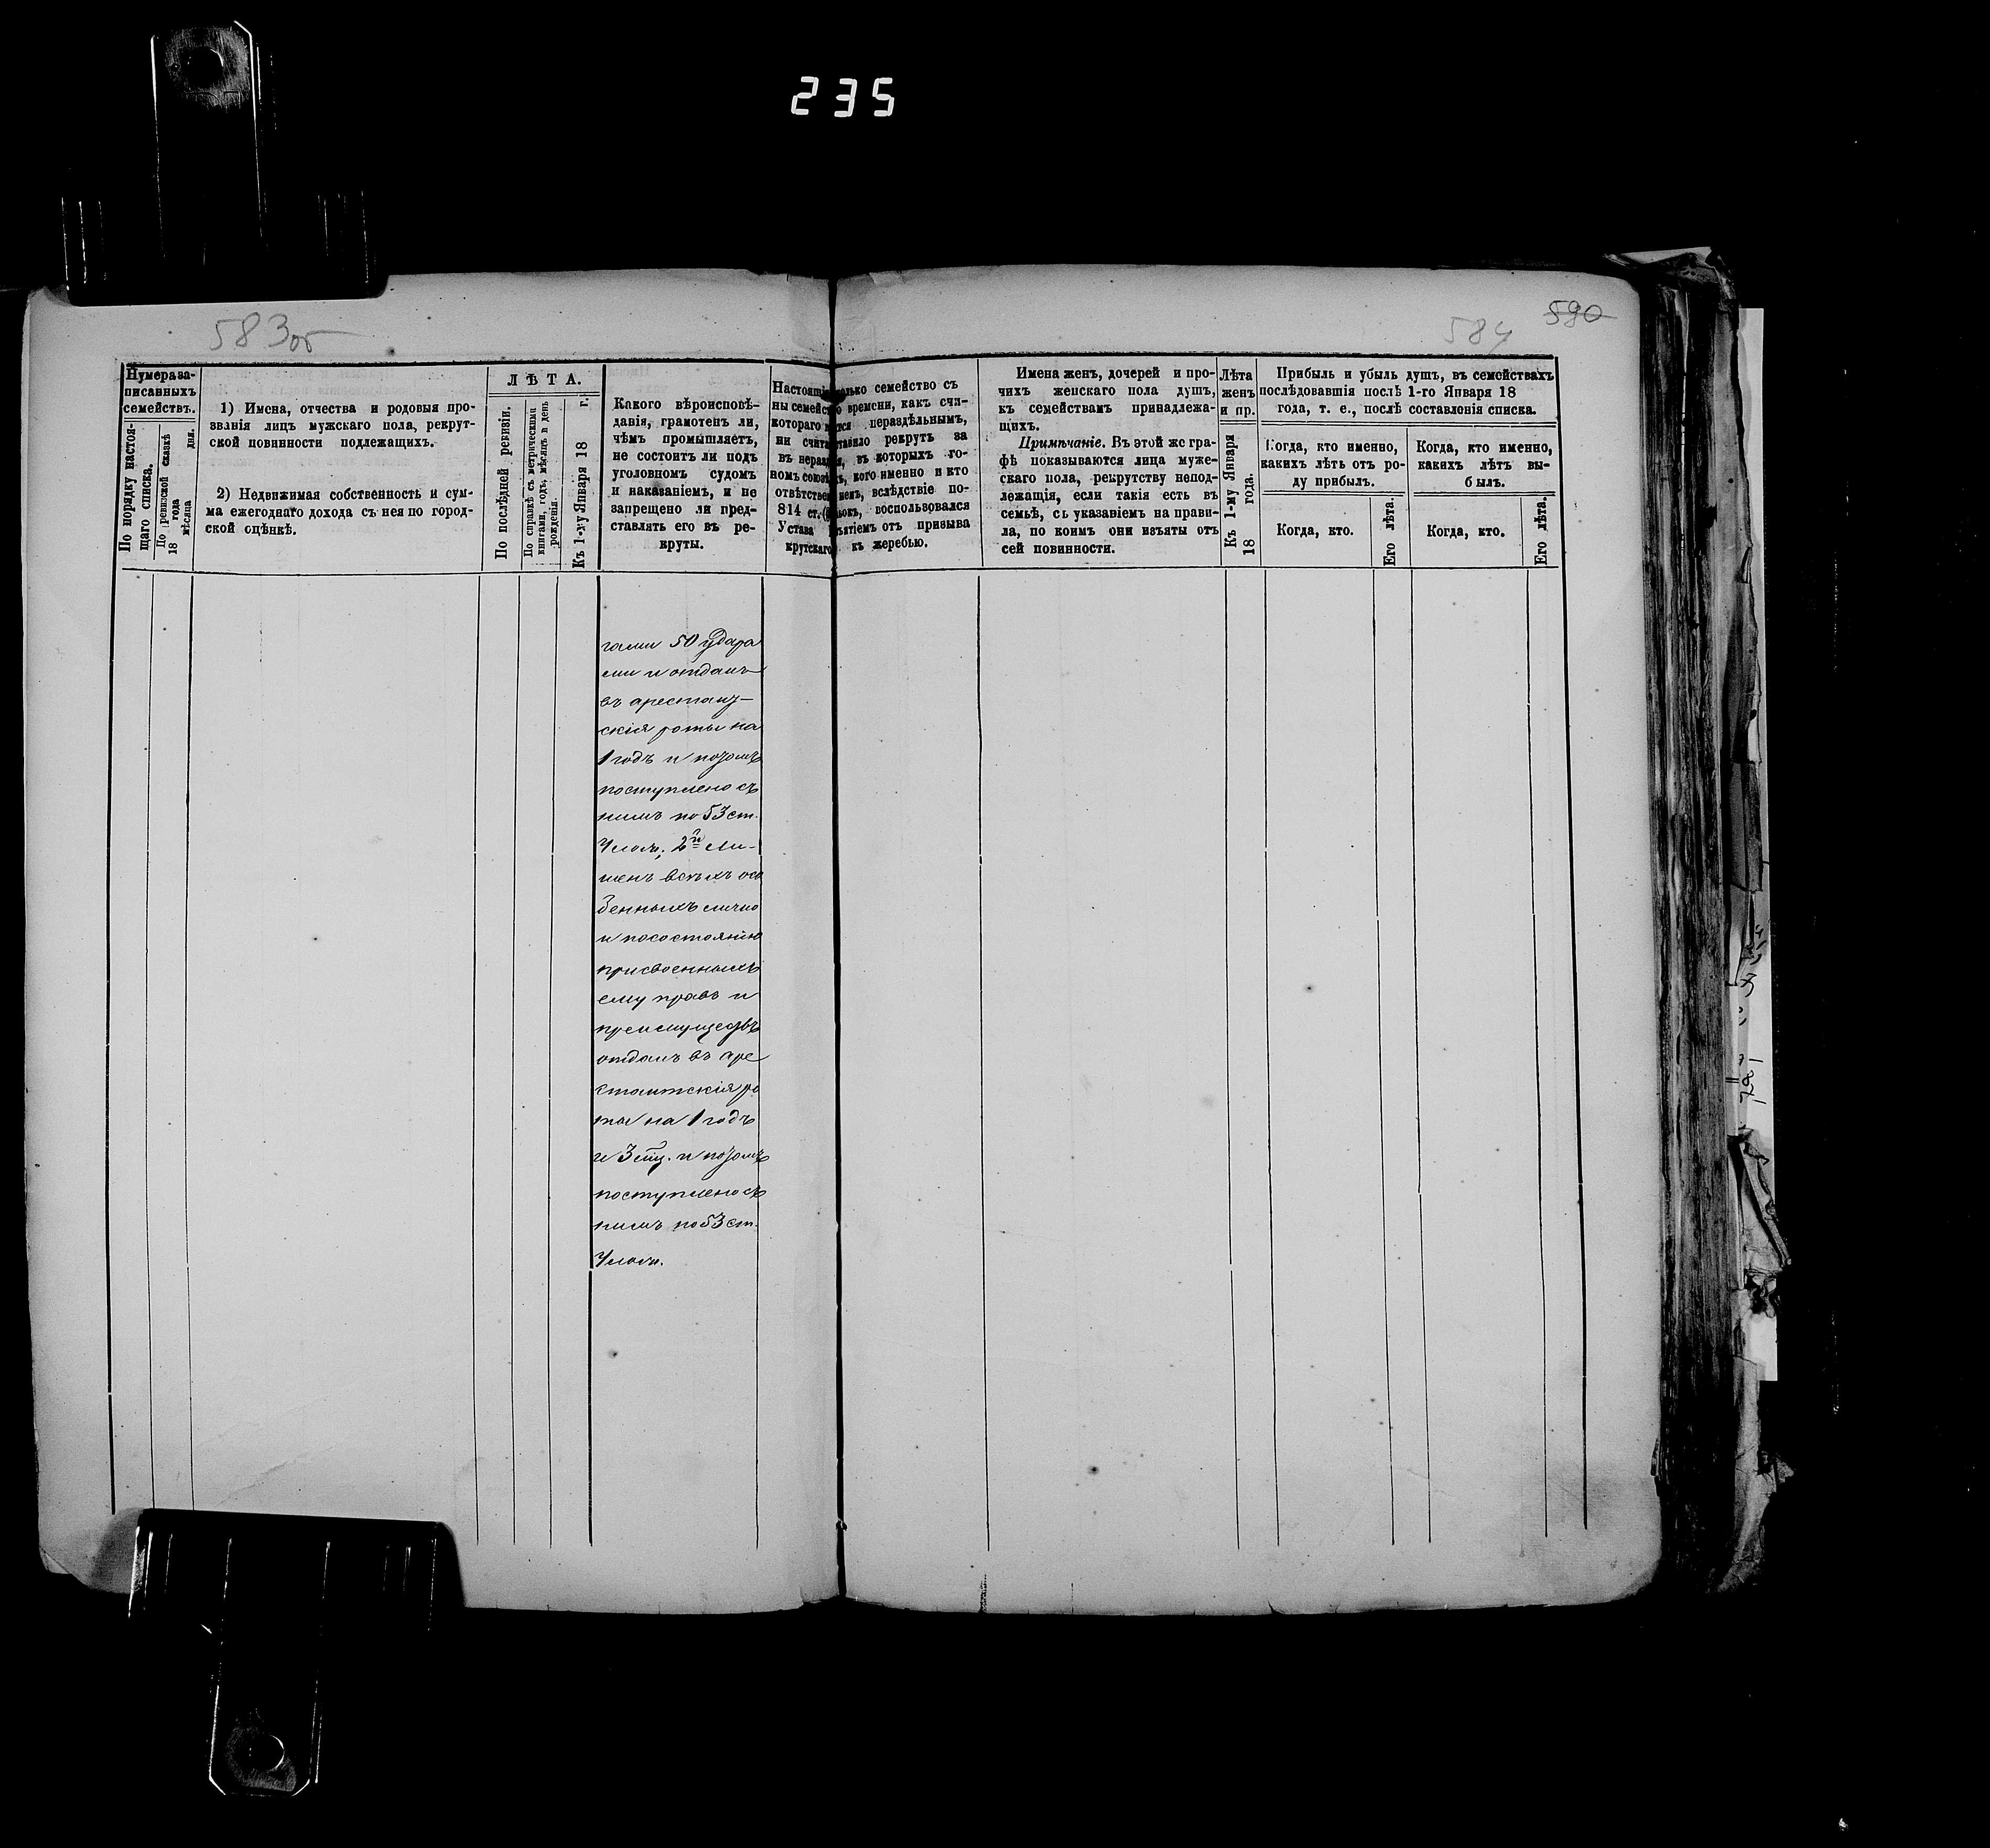 235
583об
584
590
Нумера за-
писанныхъ
семействъ.
По порядку настоя-
щаго списка.
По ревизской сказкѣ
18 года
мѣсяца дня.
1) Имена, отчества и родовыя про-
званія лицъ мужскаго пола, рекрут-
ской повинности подлежащихъ.
2) Недвижимая собственность и сум-
ма ежегоднаго дохода съ нея по город-
ской оцѣнкѣ.
ЛѢТА.
По послѣдней ревизіи.
По справкѣ съ метрическими
книгами, годъ, мѣсяцъ и день
рожденія.
Къ 1-му Января 18 г.
Какого вѣроисповѣ-
данія, грамотенъ ли,
чѣмъ промышляетъ,
не состоитъ ли подъ
уголовномъ судомъ
и наказаніемъ, и не
запрещено ли пред-
ставлять его въ ре-
круты.
Настоящі олько семейство съ
ны семейст о времени, какъ счи-
котораго тся нераздѣльнымъ,
ни счита ставило рекрутъ за
въ нераз въ которыхъ го-
номъ союз кого именно и кто
отвѣтствен немъ, вслѣдствіе по-
814 ст. воспользовался
Устава ъятіемъ отъ призыва
крутскаго къ жеребью.
Имена женъ, дочерей и про-
чихъ женскаго пола душъ,
къ семействамъ принадлежа-
щихъ.
Примѣчаніе. Въ этой же гра-
фѣ показываются лица муже-
скаго пола, рекрутству непод-
лежащія, если такія есть въ
семьѣ, съ указаніемъ на прави-
ла, по коимъ они изъяты отъ
сей повинности.
Лѣта
женъ
и пр.
Къ 1-му Января
18 года.
Прибыль и убыль душъ, въ семействахъ
послѣдовавшія послѣ 1-го Января 18
года, т. е., послѣ составленія списка.
Когда, кто именно,
какихъ лѣтъ отъ ро-
ду прибылъ.
Когда, кто.
Его лѣта.
Когда, кто именно,
какихъ лѣтъ вы-
былъ.
Когда, кто.
Его лѣта.
гами 50 удара
ми и отданъ
въ арестант-
скія роты на
1 годъ и потомъ
поступлено съ
нимъ по 53 ст.
Улож; 2й Ли-
шенъ всѣхъ осо
бенныхъ лично
и по состоянію
присвоенныхъ
ему правъ и
преимуществъ
отданъ въ аре
стантскія ро
ты на 1 годъ
и 3 мц. и потомъ
поступлено съ
нимъ по 53 ст.
Улож.